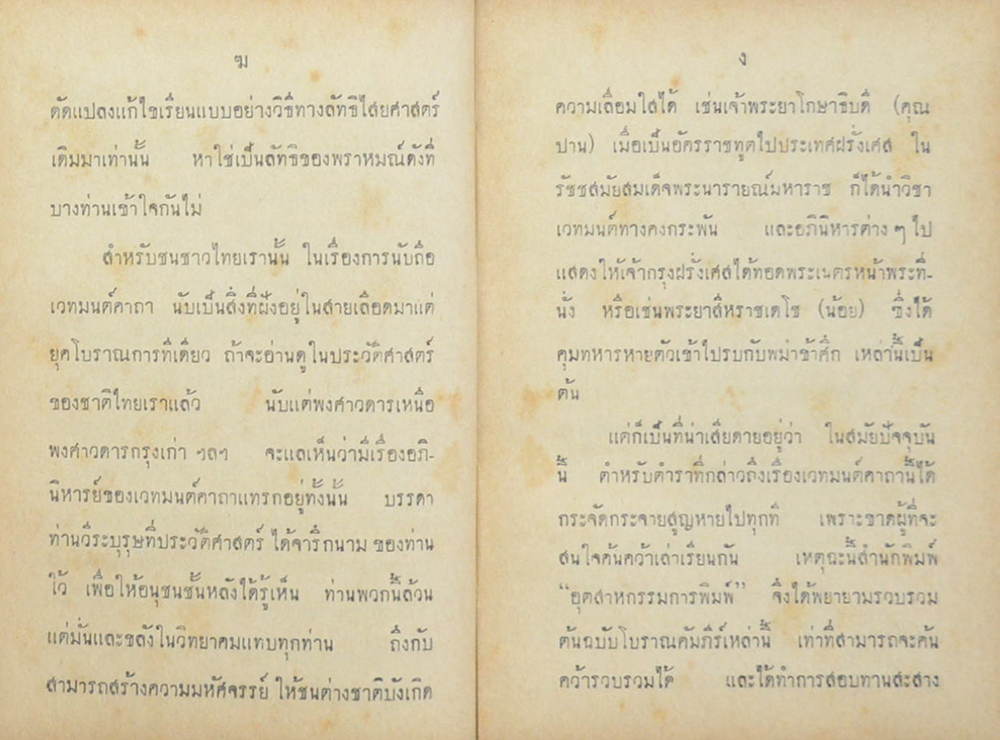 ฆ
ดัดแปลงแก้ไขเรียนแบบอย่างวิธีทางลัทธิไสยศาสตร์
เดิมมาเท่านั้น หาใช่เป็นลัทธิของพราหมณ์ดังที่
บางท่านเข้าใจกันไม่
สำหรับชนชาวไทยเรานั้น ในเรื่องการนับถือ
เวทมนต์คาถา นับเป็นสิ่งที่ฝังอยู่ในสายเลือดมาแต่
ยุคโบราณการทีเดียว ถ้าจะอ่านดูในประวัติศาสตร์
ของชาติไทยเราแล้ว นับแต่พงศาวดารเหนือ
พงศาวดารกรุงเก่า ฯลฯ จะแลเห็นว่ามีเรื่องอภิ-
นิหารย์ของเวทมนต์คาถาแทรกอยู่ทั้งนั้น บรรดา
ท่านวีระบุรุษที่ประวัติศาสตร์ ได้จารึกนาม ของท่าน
ไว้ เพื่อให้อนุชนชั้นหลังได้รู้เห็น ท่านพวกนี้ล้วน
แต่มั่นและขลังในวิทยาคมแทบทุกท่าน ถึงกับ
สามารถสร้างความมหัศจรรย์ ให้ชนต่างชาติบังเกิด
ง
ความเลื่อมใสได้ เช่นเจ้าพระยาโกษาธิบดี (คุณ
ปาน) เมื่อเป็นอัครราชทูตไปประเทศฝรั่งเศส ใน
รัชชสมัยสมเด็จพระนารายณ์มหาราช ก็ได้นำวิชา
เวทมนต์ทางคงกระพัน และอภินิหารต่าง ๆ ไป
แสดงให้เจ้ากรุงฝรั่งเศสได้ทอดพระเนตรหน้าพระที่-
นั่ง หรือเช่นพระยาสีหราชเดโช (น้อย) ซึ่งได้
คุมทหารหายตัวเข้าไปรบกับพม่าข้าศึก เหล่านี้เป็น
ต้น
แต่ก็เป็นที่น่าเสียดายอยู่ว่า ในสมัยปัจจุบัน
นี้ ตำหรับตำราที่กล่าวถึงเรื่องเวทมนต์คาถานี้ได้
กระจัดกระจายสูญหายไปทุกที เพราะขาดผู้ที่จะ
สนใจค้นคว้าเล่าเรียนกัน เหตุฉะนี้สำนักพิมพ์
“อุตสาหกรรมการพิมพ์” จึงได้พยายามรวบรวม
ต้นฉบับโบราณคัมภีร์เหล่านี้ เท่าที่สามารถจะค้น
คว้ารวบรวมได้ และได้ทำการสอบทานสะสาง